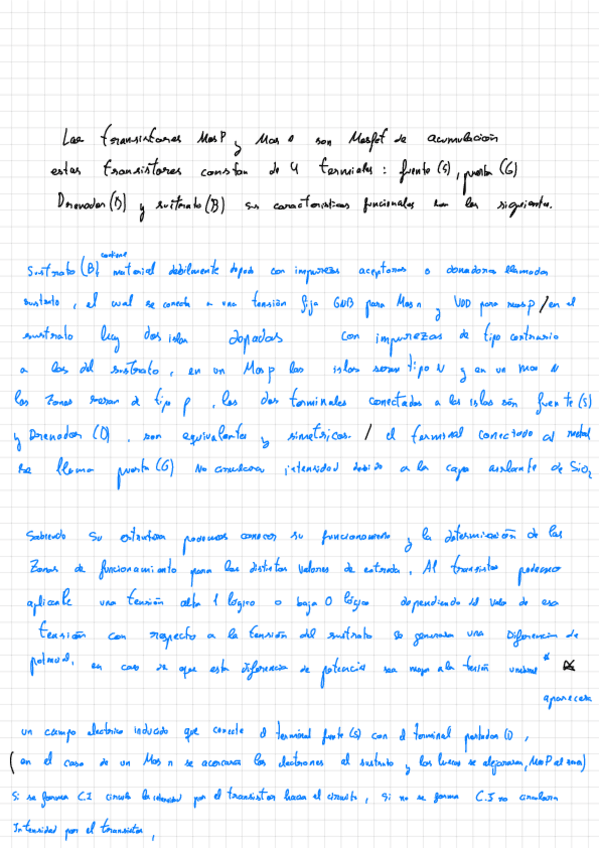 Los transistores MosP y Mos n son Mosfet de acumulación
estos transistores constan de 4 terminales : fuente (S), puerta (G)
Drenador (D) y sustrato (B) sus características funcionales son las siguientes.
Sustrato (B) contiene material debilmente dopado con impurezas aceptoras o donadoras llamados
sustrato , el cual se conecta a una tensión fija GND para Mos n y VDD para mosP / en el
sustrato hay dos islas dopadas con impurezas de tipo contrario
a las del sustrato , en un Mos p las islas seran tipo N y en un mos N
las zonas seran de tipo p , los dos terminales conectados a las islas són fuente (S)
y Drenador (D) , son equivalentes y simetricos. / el terminal conectado al metal
se llama puerta (G) No circulara intensidad debido a la capa aislante de SiO2
Sabiendo su estructura podemos conocer su funcionamiento y la determinación de las
Zonas de funcionamiento para las distintos valores de entrada . Al transistor podemos
aplicarle una tensión alta 1 lógico o baja 0 lógico dependiendo del valor de esa
tensión con respecto a la tensión del sustrato se generara una Diferencia de
potencial, en caso de que esta diferencia de potencia sea mayor a la tensión umbral *
aparecera
un campo electrico inducido que conecte el terminal fuente (S) con el terminal (D) ,
( en el caso de un Mos n se acercaran los electrones al sustrato y los huecos se alejaran, MosP al )
Si se forma C.I circula la intensidad por el transistor hacia el circuito , Si no se forma C.I no circulara
Intensidad por el transistor ,